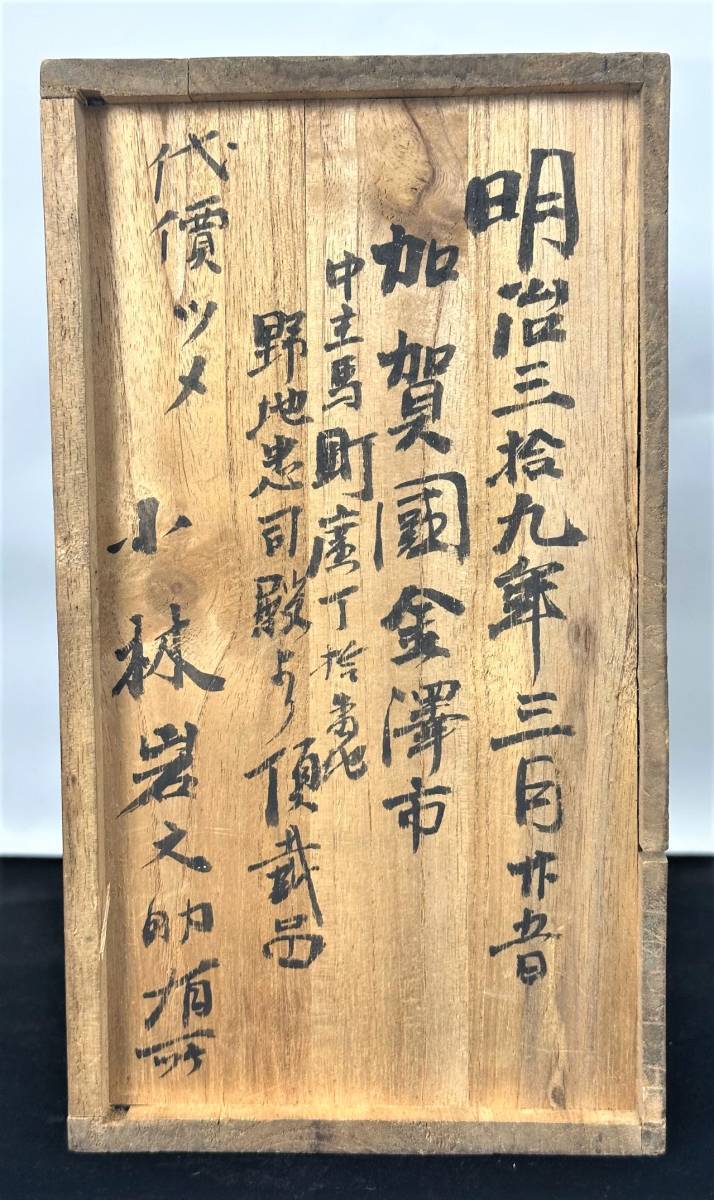 明治三拾九年三月廿五日
加賀國金澤市
中主馬町壱丁拾番地
野地忠司殿より頂戴品
代價ツメ
小林岩之助